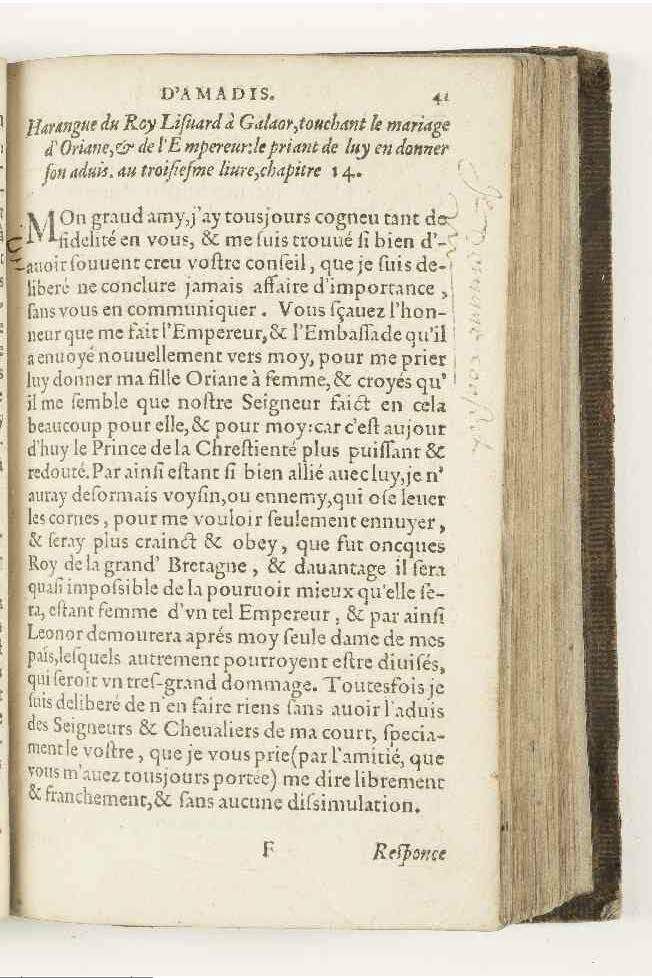 D'AMADIS. 41
Harangue du Roy Lisuard à Galaor, touchant le mariage
d'Oriane, & de l'Empereur: le priant de luy en donner
son aduis. au troisiesme liure, chapitre 14.
MOn grand amy, j'ay tousjours cogneu tant de
fidelité en vous, & me suis trouué si bien d'-
auoir souuent creu vostre conseil, que je suis de-
liberé ne conclure jamais affaire d'importance,
sans vous en communiquer. Vous sçauez l'hon-
neur que me fait l'Empereur, & l'Embassade qu'il
a enuoyé nouuellement vers moy, pour me prier
luy donner ma fille Oriane à femme, & croyés qu'
il me semble que nostre Seigneur faict en cela
beaucoup pour elle, & pour moy: car c'est aujour
d'huy le Prince de la Chrestienté plus puissant &
redouté. Par ainsi estant si bien allié auec luy, je n'
auray desormais voysin, ou ennemy, qui ose leuer
les cornes, pour me vouloir seulement ennuyer,
& seray plus crainct & obey, que fut oncques
Roy de la grand' Bretagne, & dauantage il sera
quasi impossible de la pouruoir mieux qu'elle se-
ra, estant femme d'vn tel Empereur, & par ainsi
Leonor demourera aprés moy seule dame de mes
païs, lesquels autrement pourroyent estre diuisés,
qui seroit vn tres-grand dommage. Toutesfois je
suis deliberé de n'en faire riens sans auoir l'aduis
des Seigneurs & Cheualiers de ma court, specia-
ment le vostre, que je vous prie (par l'amitié, que
vous m'auez tousjours portée) me dire librement
& franchement, & sans aucune dissimulation.
F Responce